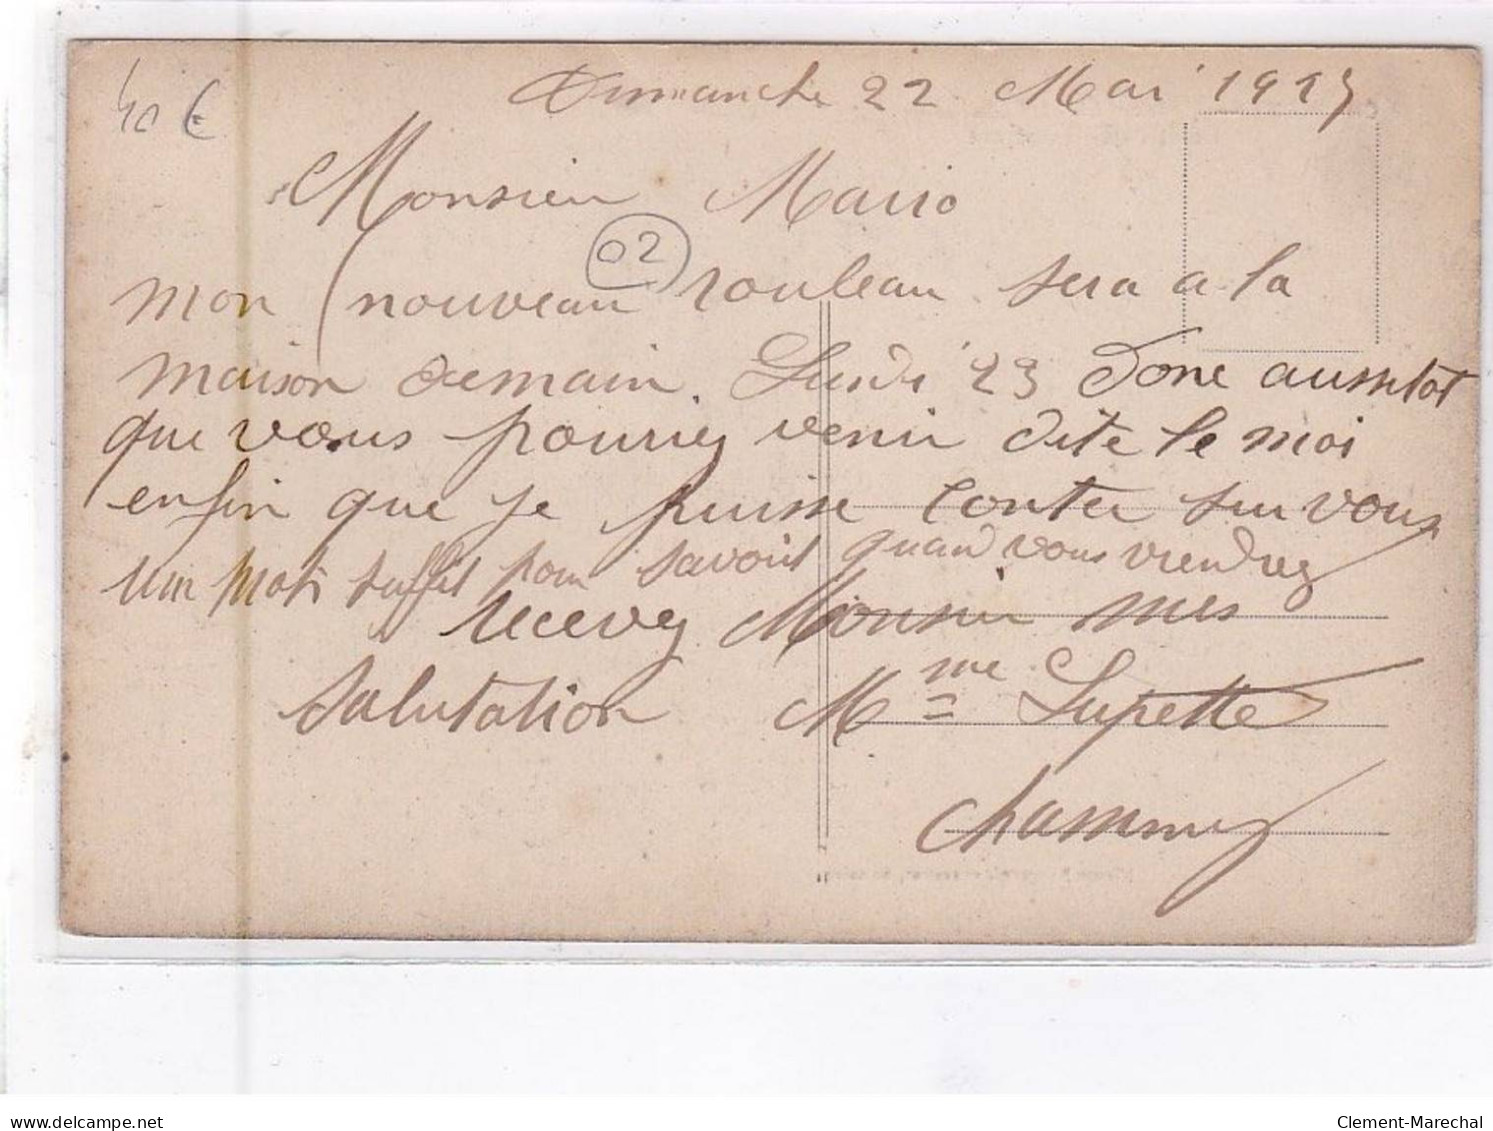 40 €
Dimanche 22 Mai 1915
Monsieur Mario
02
mon nouveau rouleau sera a la
maison demain. Lundi 23 Donc aussitot
que vous pouriez venir dite le moi
enfin que je puisse conter sur vous
un mot suffit pour savoir quand vous viendrez
recevez Monsieur mes
salutation Mme Lupette
delcampe.net
Clement-Marechal